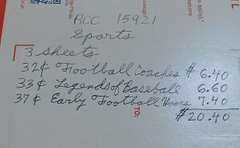 ACC 15921
Sports
3 sheets
32¢ Football Coaches $ 6.40
33¢ Legends of Baseball 6.60
37¢ Early Football 7.40
$20.40